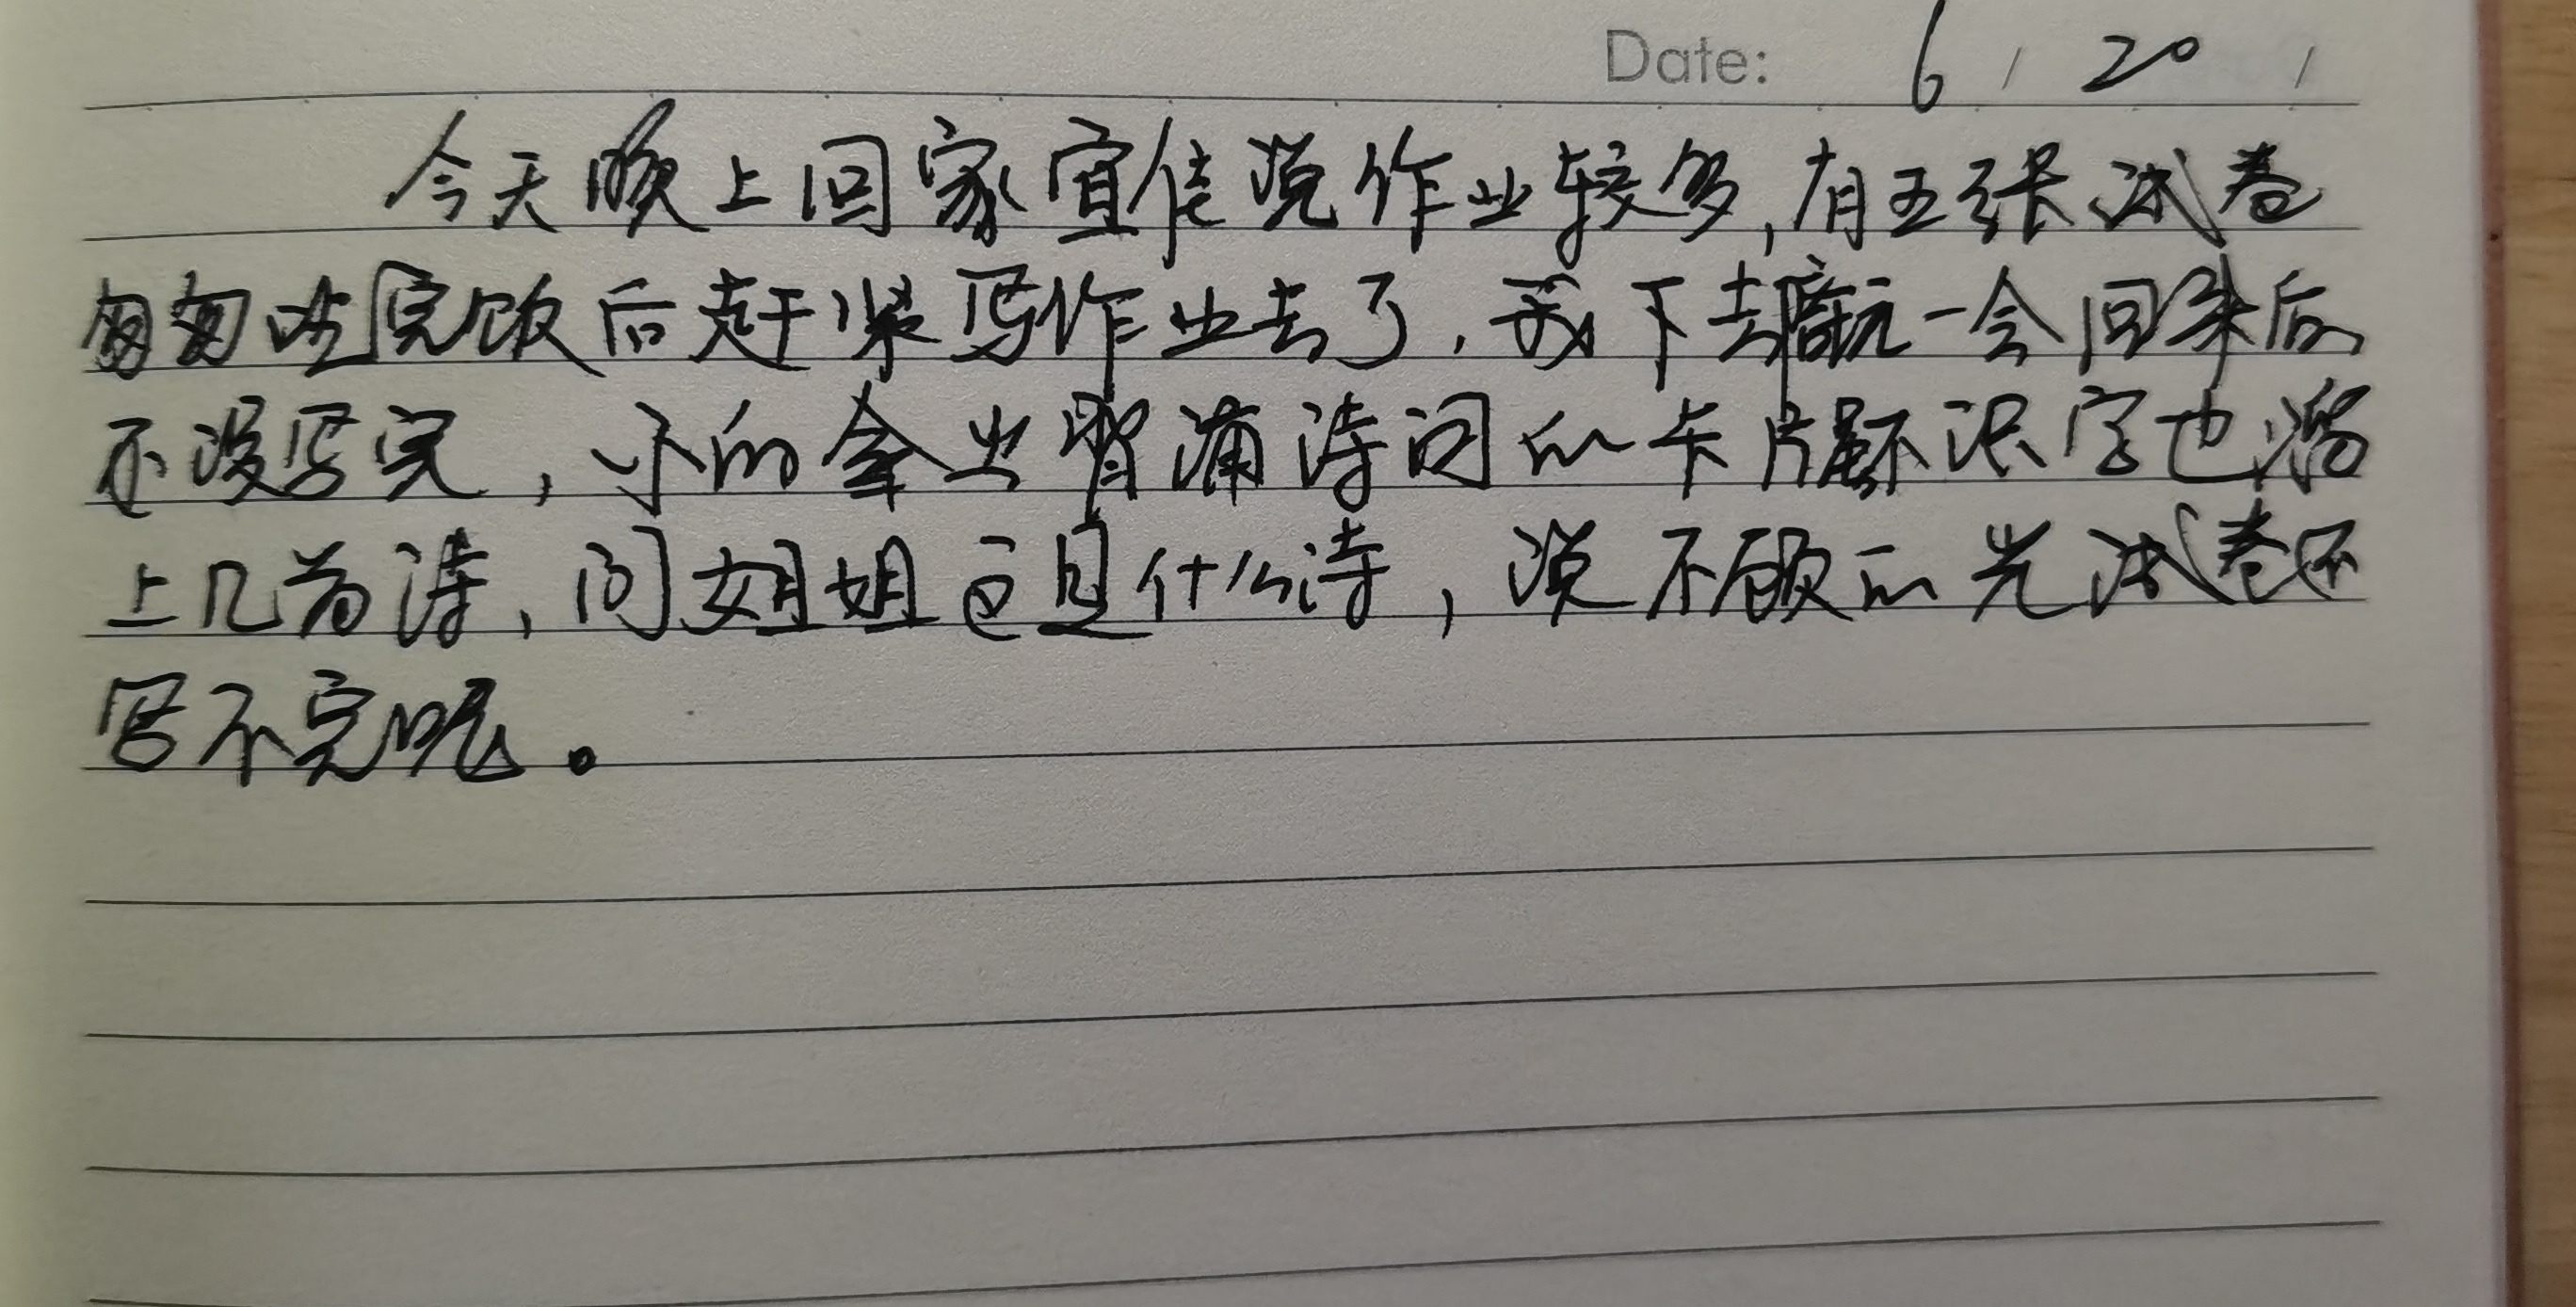 Date: 6 / 20 /
今天晚上回家宜佳说作业较多,有五张试卷
匆匆吃完饭后赶紧写作业去了,我下去玩一会回来后
还没写完,小的拿出背诵诗词的卡片不识字也能
上几首诗,问姐姐这是什么诗,说不顾的光试卷还
写不完呢。